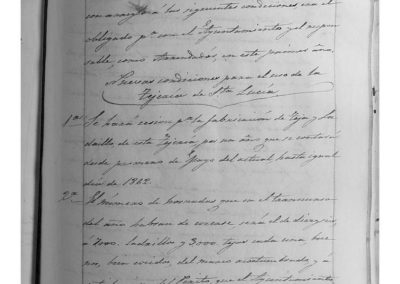 con arreglo á las siguientes condiciones era el
obligado pª con el Ayuntamiento y el respon
sable, como Arrendador, en este primer año.
Nuevas condiciones para el uso de la
Tejería de Sta Lucía
1ª Se hará cesion pª la fabricación de Teja y La
drillo de esta Tejería, por un año que se contará
desde primero de Mayo del actual hasta igual
dia de 1862.
2ª El número de horneadas que en el transcurso
del año habran de cocerse será el de diez y seis
á 7000. ladrillos y 3000 tejas cada una lo me
nos, bien cocidos, del marco acostumbrado, y á
del Perito, que el Ayuntamiento